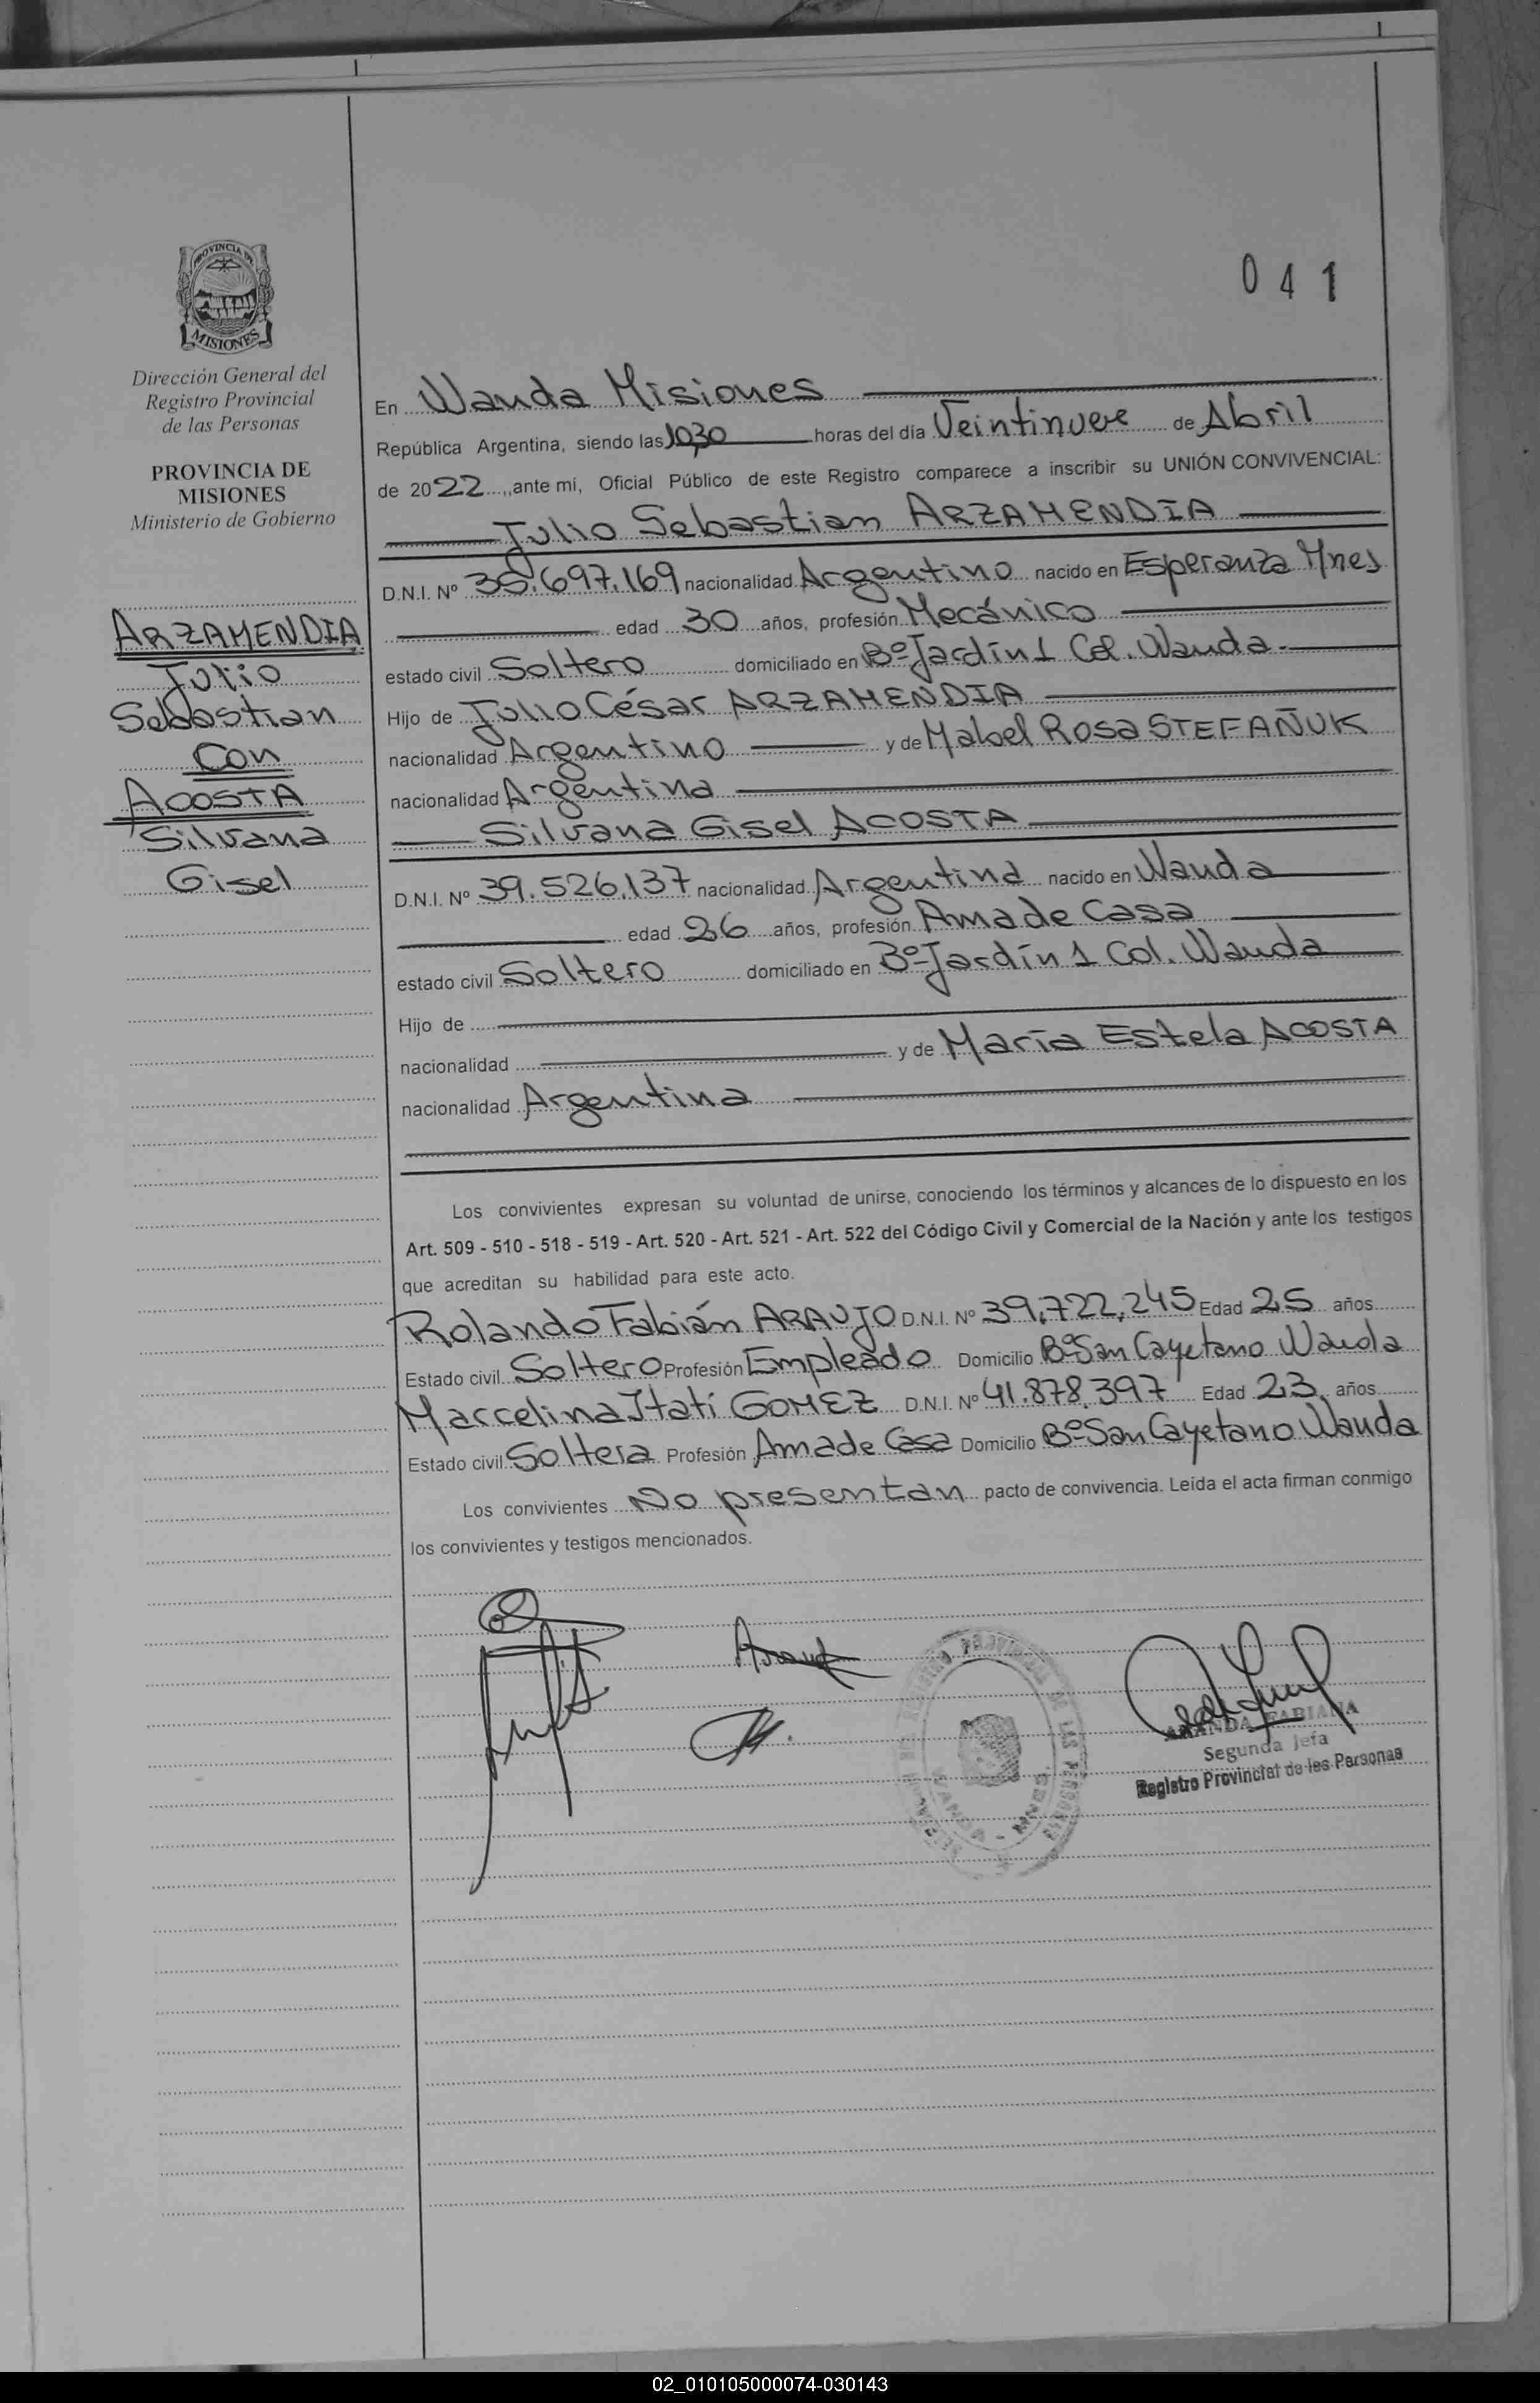 041
PROVINCIA DE
MISIONES
Dirección General del
Registro Provincial
de las Personas
PROVINCIA DE
MISIONES
Ministerio de Gobierno
ARZAMENDIA
Julio
Sebastian
Con
ACOSTA
Silvana
Gisel
En Wanda Misiones
República Argentina, siendo las 10,30 horas del día Veintinueve de Abril
de 2022, ante mi, Oficial Público de este Registro comparece a inscribir su UNIÓN CONVIVENCIAL:
Julio Sebastian ARZAMENDIA
D.N.I. Nº 36.697.169 nacionalidad Argentino nacido en Esperanza Ynes
edad 30 años, profesión Mecánico
estado civil Soltero domiciliado en Bº Jardín 1 Col. Wanda.
Hijo de Julio César ARZAMENDIA
nacionalidad Argentino y de Mabel Rosa STEFAÑUK
nacionalidad Argentina
Silvana Gisel ACOSTA
D.N.I. Nº 39.526.137 nacionalidad Argentina nacido en Wanda
edad 26 años, profesión Ama de Casa
estado civil Soltero domiciliado en Bº Jardín 1 Col. Wanda
Hijo de
nacionalidad y de María Estela ACOSTA
nacionalidad Argentina
Los convivientes expresan su voluntad de unirse, conociendo los términos y alcances de lo dispuesto en los
Art. 509 - 510 - 518 - 519 - Art. 520 - Art. 521 - Art. 522 del Código Civil y Comercial de la Nación y ante los testigos
que acreditan su habilidad para este acto.
Rolando Fabián ARAUJO D.N.I. Nº 39.722.245 Edad 25 años
Estado civil Soltero Profesión Empleado Domicilio Bº San Cayetano Wanda
Marcelina Itatí GOMEZ D.N.I. Nº 41.878.397 Edad 23 años
Estado civil Soltera Profesión Ama de Casa Domicilio Bº San Cayetano Wanda
Los convivientes No presentan pacto de convivencia. Leída el acta firman conmigo
los convivientes y testigos mencionados.
FABIANA
Segunda Jefa
Registro Provincial de las Personas
02_010105000074-030143